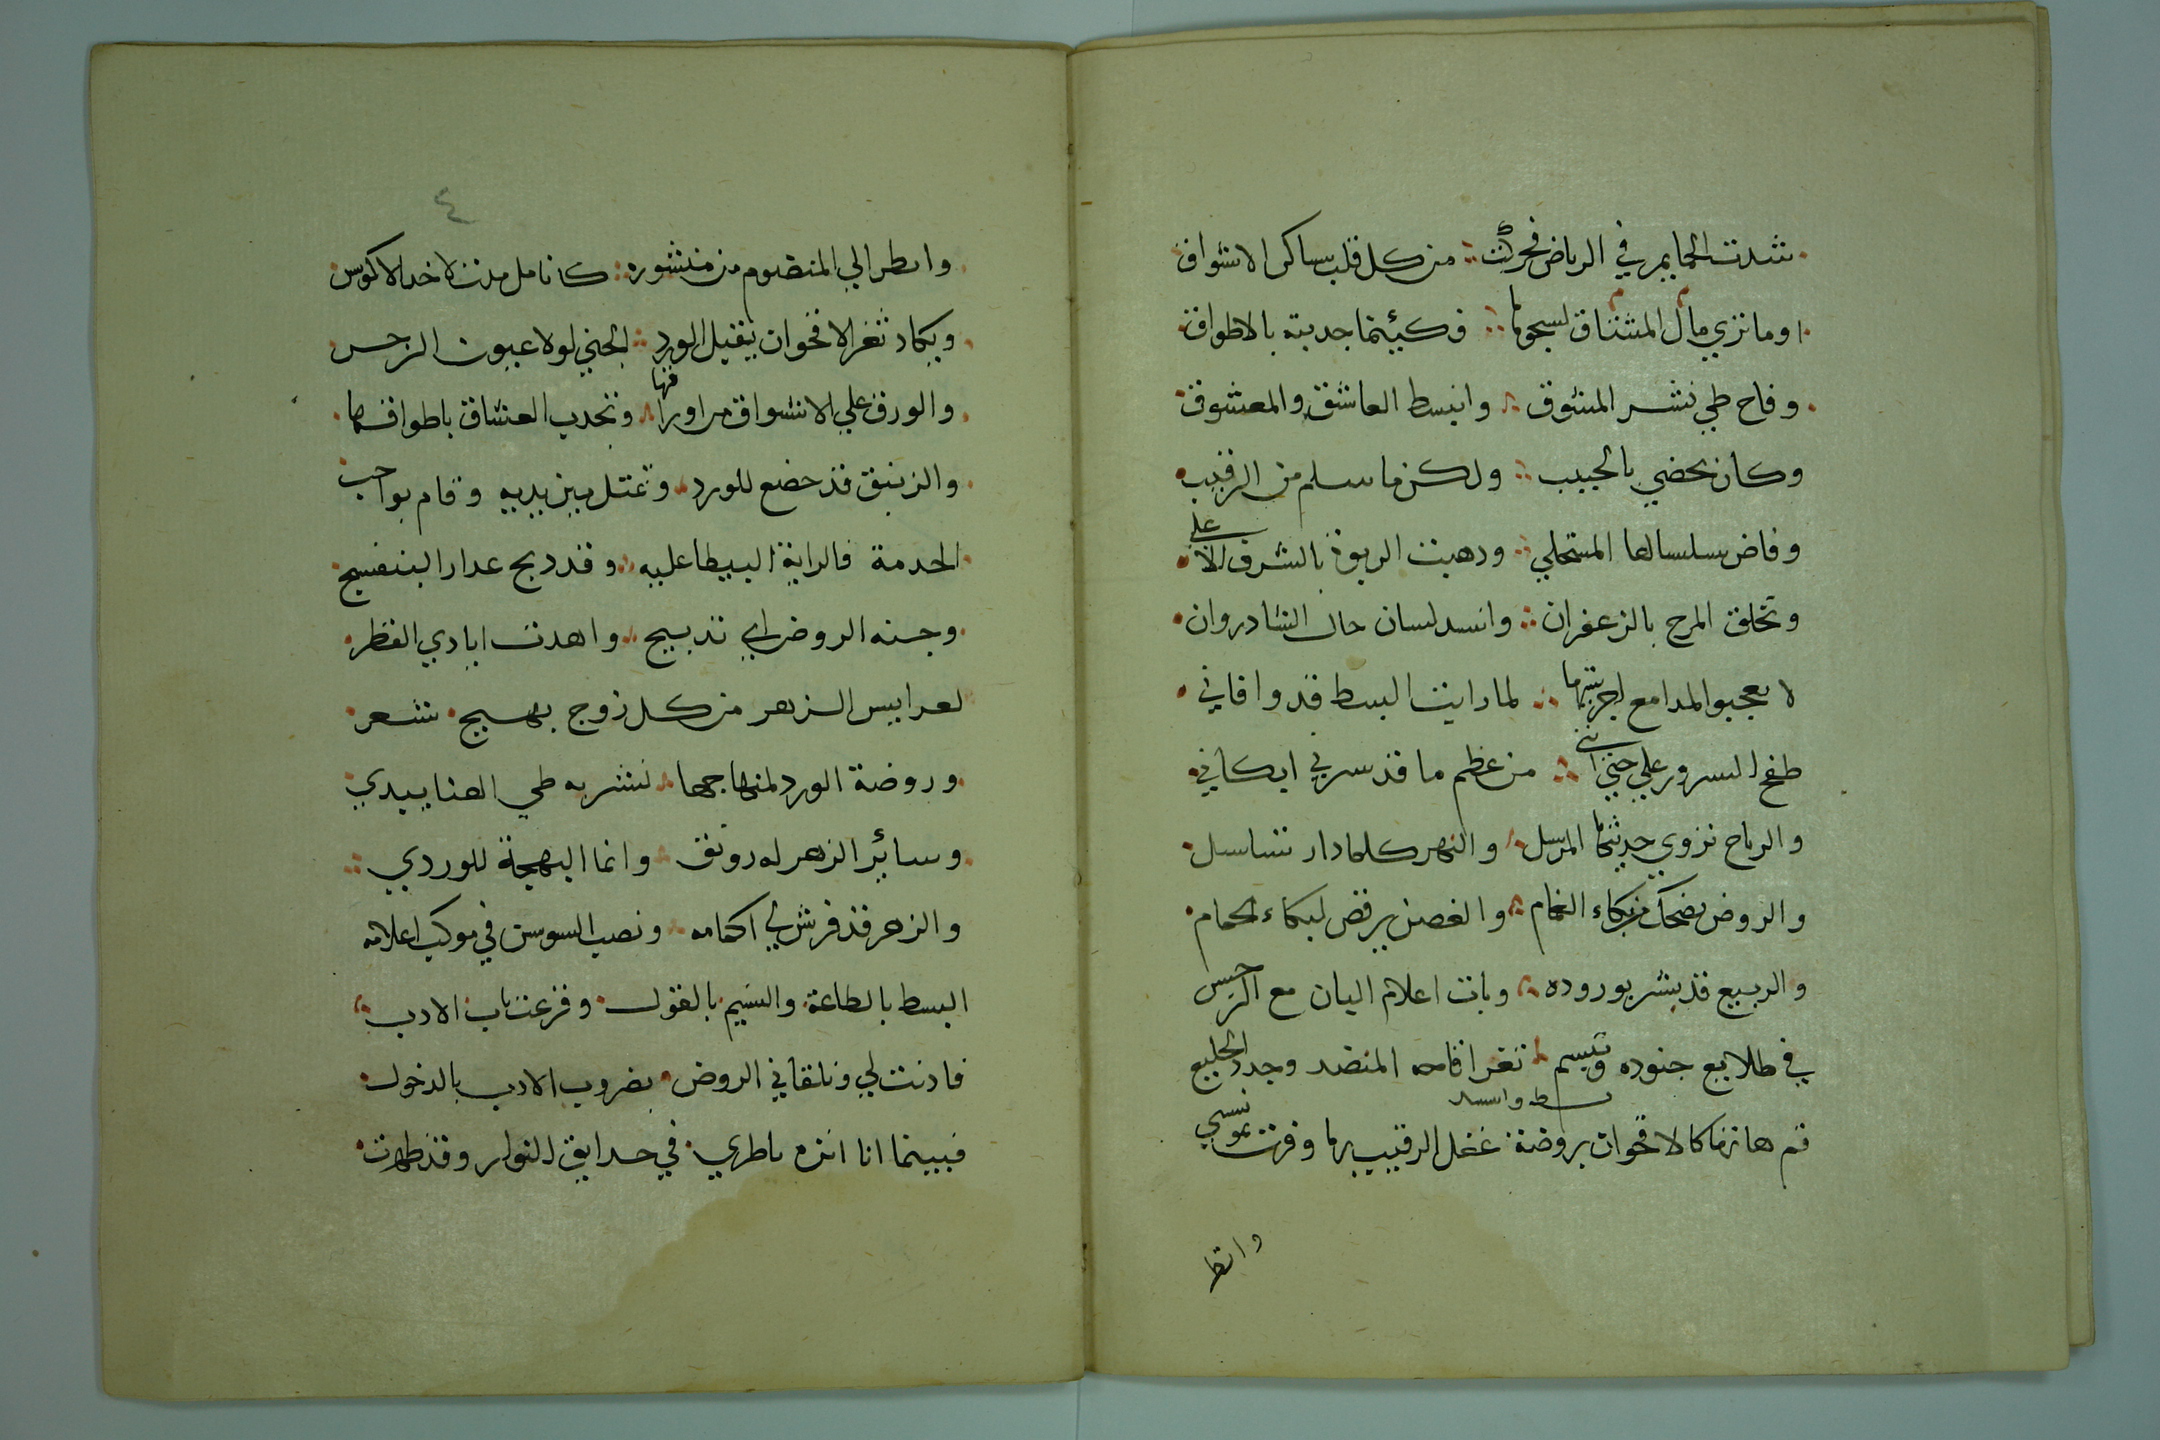 شدت الحمايم في الرياض فحركت من كل قلب ساكن الاشواق
اوما تري مال المشتاق لسجوها وكيئنها جدبته بالاطواق
وفاح طي نشر المشوق وانبسط العاشق والمعشوق
وكان يحضي بالحبيب ولكن ما سلم من الرقيب
وفاض سلسالها المستحلي ودهبت الربوة بالشرف الاعلي
وتخلق المرج بالزعفران وانسد لسان حال الشادروان
لا تعجبوا لمدامع اجريتها لما رايت البسط قد وافاني
طفح السرور علي حتي انني من عظم ما قد سرني ابكاني
والرياح تروي حديثها المرسل والنهر كلما دار تساسل
والروض يضحك من بكاء الغمام والغصن يرقص لبكاء الحمام
والربيع قد بشر بوروده وبانت اعلام البان مع النرجس
في طلايع جنوده وتبسم ثغر اقاحه المنضد وجدد الخليع
قم هاتها كالاقحوان بروضة غفل الرقيب بها وقرت
وانظر
٤
وانظر الي المنضوم من منشوره كانامل مدت لاخد الاكوس
ويكاد ثغر الاقحوان بتقبيل الورد الجني لولا عيون النرجس
والورق علي الاشواق من اوراقها وتجدب العشاق باطواقها
والزنبق قد خضع للورد وتمثل بين يديه وقام بواجب
الخدمة فالراية البيضا عليه وقد دبج عدار البنفسج
وجنه الروض اي تدبيج واهدت ايادي القطر
لعرايس الزهر من كل زوج بهيج شعر
وروضة الورد لمنهاجها نشر به طي العنا بيدي
وساير الزهر له رونق وانما البهجة للوردي
والزهر قد فرش لي اكمامه ونصب السوسن في موكب اعلامه
البسط بالطاعة والنسيم بالقول وقرعت باب الادب
فادنت لي وتلقاني الروض بضروب الادب بالدخول
فبينما انا انزه ناظري في حدايق النوار وقد ظهرت